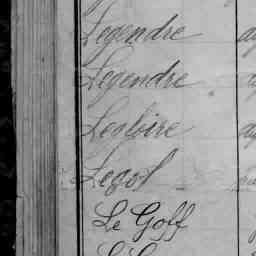 Legendre
Legendre
Legloire
Legol
Le Goff